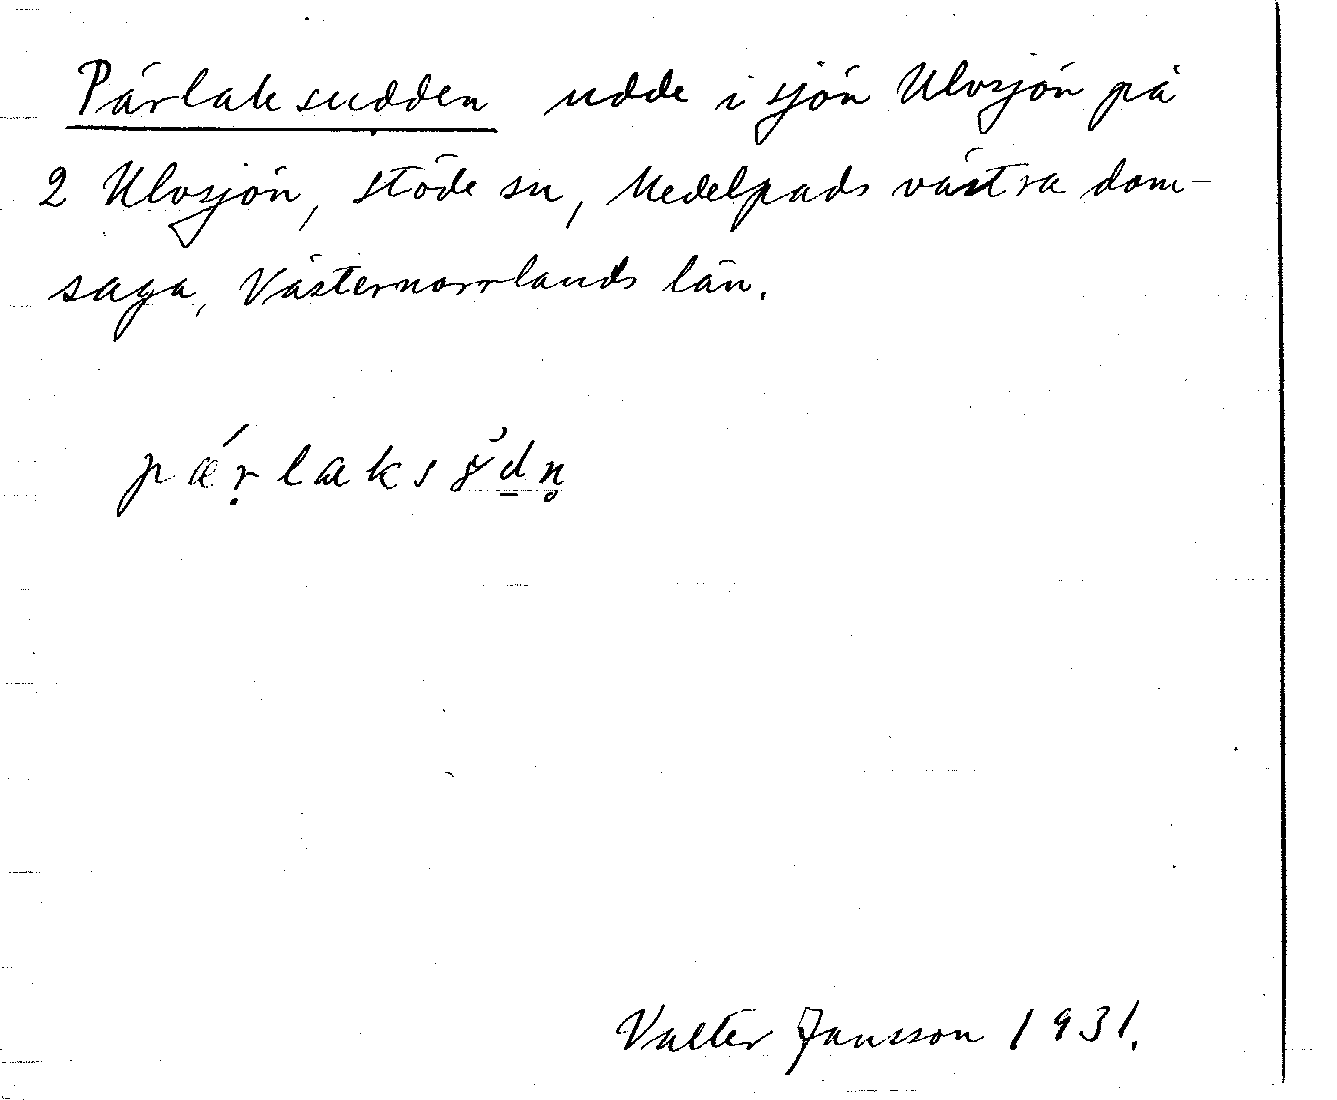 Pärlaksudden udde i sjön Ulvsjön på
2 Ulvsjön, Stöde sn, Medelpads västra dom-
saga, Västernorrlands län.
Valter Jansson 1931.